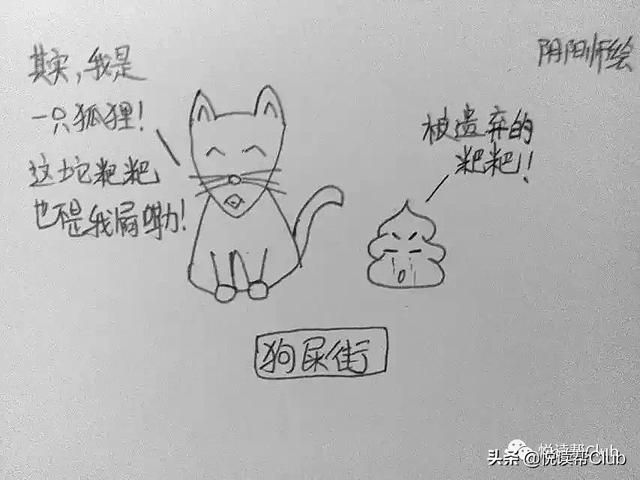 其实,我是
一只狐狸!
这坨粑粑
也不是我屙嘞!
被遗弃的
粑粑!!
阴阳师绘
狗屎街
悦读帮Club
头条 @悦读帮Club